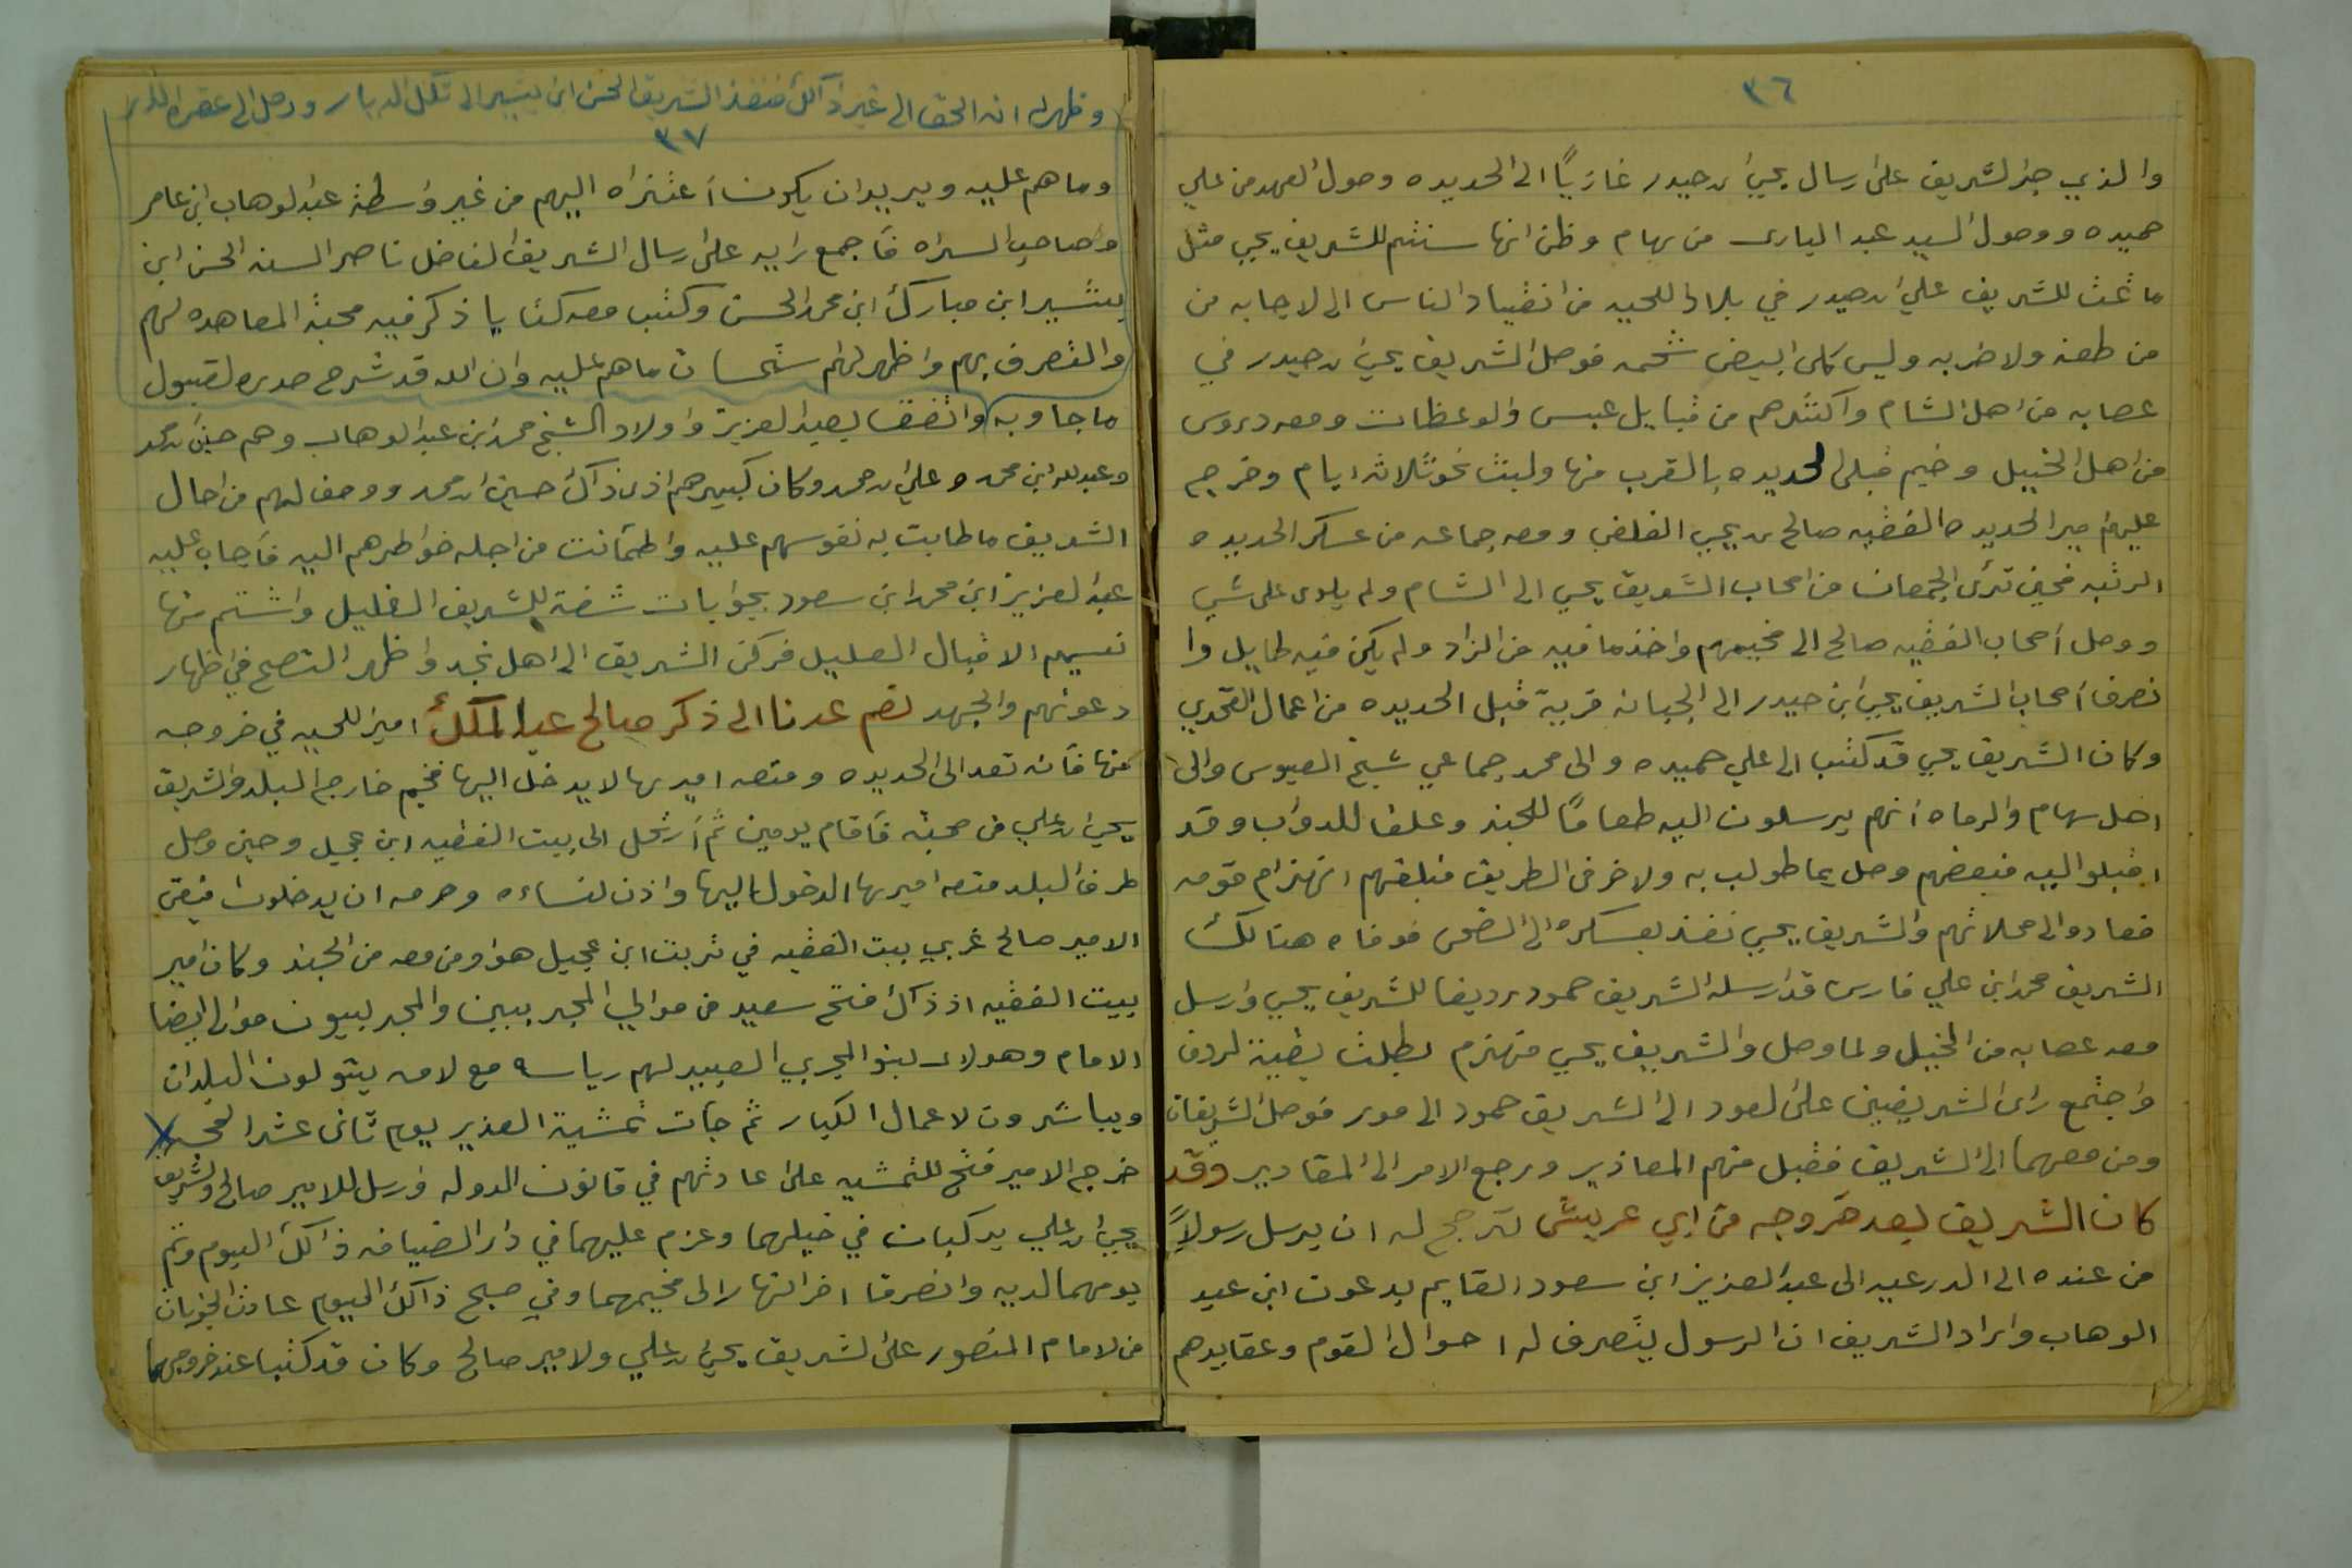 ٣٦
والذي جبر الشريف على ارسال يحيى بن حيدر غازيًا الى الحديده وصول العهد من علي
حميده ووصول السيد عبد البارى من سهام وظن انها ستتم للشريف يحيى مثل
ما تمت للشريف علي بن حيدر في بلاد اللحيه من انقياد الناس الى الاجابه من
من طعنه ولا ضربه وليس كلى ابيض شحمه فوصل الشريف يحيى بن حيدر في
عصابه من اهل الشام واكثرهم من قبايل عبس والوعظات ومعه دروس
من اهل الخيل وخيم قبلى الحديده بالقرب منها ولبث نحو ثلاثة ايام وخرج
عليهم امير الحديده الفقيه صالح بن يحيى الفلفى ومعه جماعه من عسكر الحديده
الرتبه فحين ترأى الجمعان من اصحاب الشريف يحيى الى الشام ولم يلوى على شي
ووصل أصحاب الفقيه صالح الى مخيمهم واخذ ما فيه من الزاد ولم يكن فيه طايل وا
نصرف أصحاب الشريف يحيى ابن حيدر الى الجبانه قرية قبل الحديده من اعمال القحري
وكان الشريف يحيى قد كتب الى علي حميده والى محمد جماعي شيخ العبوس والى
اهل سهام والرماه أنهم يرسلون اليه طعامًا للجند وعلفا للدواب وقد
اقبلو اليه فبعضهم وصل بما طولب به ولاخر فى الطريق فبلغهم انهزام قومه
فعادو الى محلاتهم والشريف يحيى نفذ بعسكره الى الضحى فوفاه هنالك
الشريف محمد ابن علي فارس قد ارسله الشريف حمود رديفا للشريف يحيى وارسل
معه عصابه من الخيل ولما وصل والشريف يحيى منهزم بطلت بقية لردف
واجتمع راى الشريفين على العود الى الشريف حمود الى مور فوصل الشريفان
ومن معهما الى الشريف فقبل منهم المعاذير ورجع الامر الى المقادير وقد
كان الشريف بعد خروجه من ابي عريش ترجح له ان يرسل رسولاً
من عنده الى الدرعيه الى عبد العزيز ابن سعود القايم بدعوت ابن عبد
الوهاب واراد الشريف ان الرسول يتصرف له احوال القوم وعقايدهم
وظهر له ان الحق الى غير ذالك فنفذ الشريف الحسن ابن بشير الى تلك الديار ووصل الى عقر
٣٧
وما هم عليه ويريد ان يكون اعتزاه اليهم من غير واسطة عبد الوهاب ابن عامر
وصاحب السراه فأجمع رايه على ارسال الشريف الفاضل ناصر السنه الحسن ابن
بشير ابن مبارك ابن محمد الحسن وكتب معه كتابا ذكر فيه محبة المعاهده لهم
والتصرف بهم واظهر لهم استحسان ما هم عليه وان الله قد شرح صدره لقبول
ما جاو به واتفق بعبد العزيز واولاد الشيخ محمد ابن عبد الوهاب وهم حسين بن محمد
وعبدلله ابن محمد وعلي بن محمد وكان كبيرهم اذ ذاك حسين بن محمد ووصف لهم من احال
الشريف ما طابت به نفوسهم عليه واطمأنت من اجله خواطرهم اليه فأجاب عليه
عبد العزيز ابن محمد ابن سعود بجوابات شفت للشريف الغليل واشتم منها
نسيم الاقبال العليل فركن الشريف الى اهل نجد واظهر النصح في اظهار
دعوتهم والجهد نعم عدنا الى ذكر صالح عبد الملك امير اللحيه في خروجه
منها فأنه تعد الى الحديده ومنعه اميرها لا يدخل اليها فخيم خارج البلد والشريف
يحيى بن علي من صحبته فأقام يومين ثم أرتحل الى بيت الفقيه ابن عجيل وحين وصل
طرف البلد منعه اميرها الدخول اليها واذن لنساءه وحرمه ان يدخلون فبقى
الامير صالح غربي بيت الفقيه في تربت ابن عجيل هو ومن معه من الجند وكان امير
بيت الفقيه اذ ذاك فتح سعيد من موالي المجربيين والمجربيون موالى ايضا
الامام وهولاى بنو المجربي العبيد لهم رياسه مع لامه يتولون البلدان
ويباشرون لاعمال الكبار ثم جآت نمشية الغدير يوم ثانى عشر الحجه
خرج الامير فتح للتمشيه على عادتهم في قانون الدوله ورسل للامير صالح والشريف
يحيى بن علي يركبان في خيلهما وعزم عليهما في دار الضيافه ذالك اليوم وتم
يومهما لديه وانصرفا اخر النهار الى مخيمهما وفي صبح ذالك اليوم عادت الجوبات
من لامام المنصور على الشريف يحيى بن علي ولامير صالح وكان قد كتبا عند خروجهما